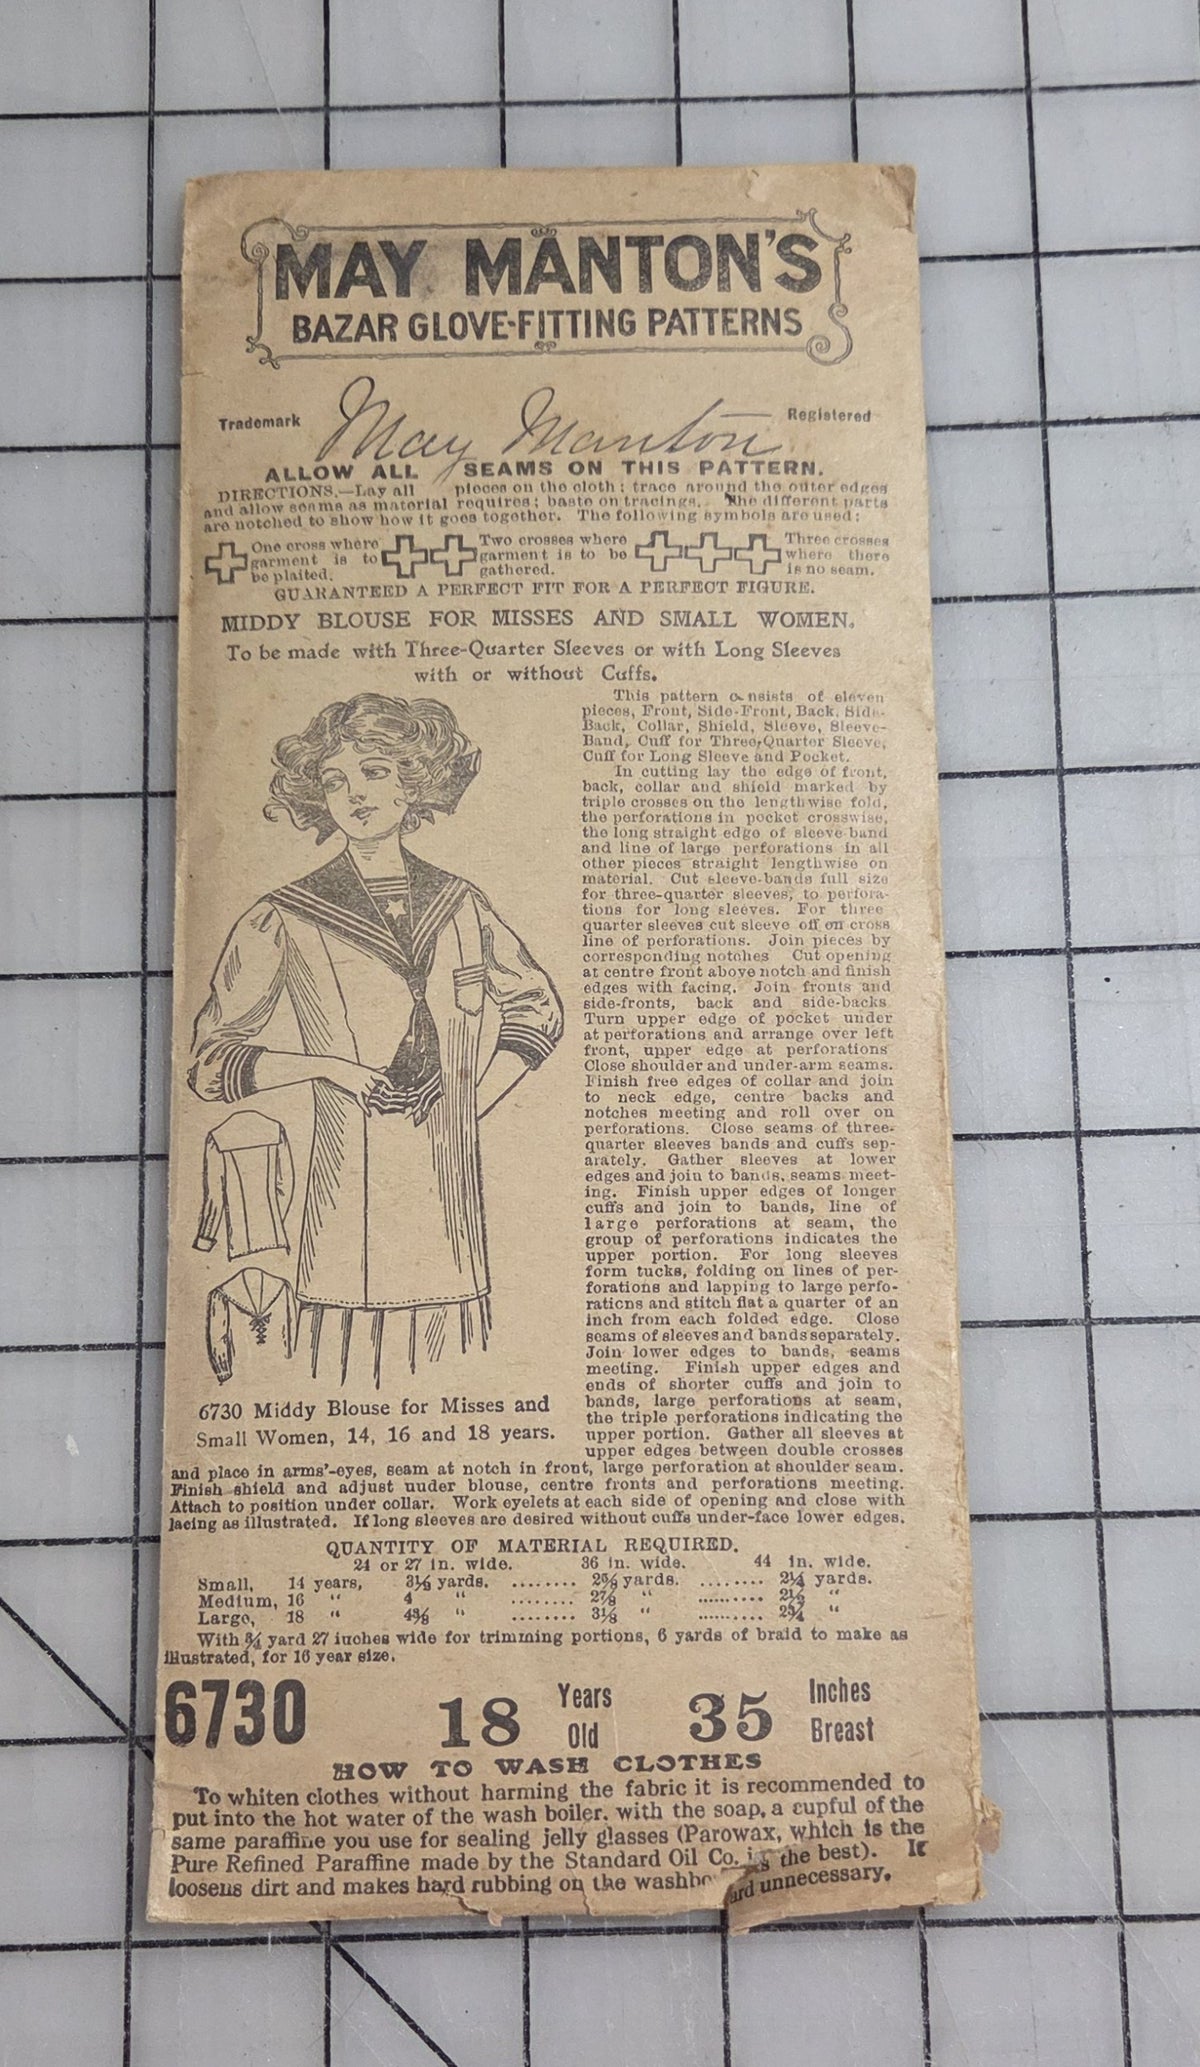 MAY MANTON'S
BAZAR GLOVE-FITTING PATTERNS
Trademark May Manton Registered
ALLOW ALL SEAMS ON THIS PATTERN.
DIRECTIONS.—Lay all pieces on the cloth; trace around the outer edges
and allow seams as material requires; baste on tracings. The different parts
are notched to show how it goes together. The following symbols are used:
One cross where
garment is to
be plaited.
Two crosses where
garment is to be
gathered.
Three crosses
where there
is no seam.
GUARANTEED A PERFECT FIT FOR A PERFECT FIGURE.
MIDDY BLOUSE FOR MISSES AND SMALL WOMEN.
To be made with Three-Quarter Sleeves or with Long Sleeves
with or without Cuffs.
This pattern consists of eleven
pieces, Front, Side-Front, Back, Side-
Back, Collar, Shield, Sleeve, Sleeve-
Band, Cuff for Three-Quarter Sleeve,
Cuff for Long Sleeve and Pocket.
In cutting lay the edge of front,
back, collar and shield marked by
triple crosses on the lengthwise fold,
the perforations in pocket crosswise,
the long straight edge of sleeve-band
and line of large perforations in all
other pieces straight lengthwise on
material. Cut sleeve-bands full size
for three-quarter sleeves, to perfora-
tions for long sleeves. For three
quarter sleeves cut sleeve off on cross
line of perforations. Join pieces by
corresponding notches Cut opening
at centre front above notch and finish
edges with facing. Join fronts and
side-fronts, back and side-backs
Turn upper edge of pocket under
at perforations and arrange over left
front, upper edge at perforations
Close shoulder and under-arm seams.
Finish free edges of collar and join
to neck edge, centre backs and
notches meeting and roll over on
perforations. Close seams of three-
quarter sleeves bands and cuffs sep-
arately. Gather sleeves at lower
edges and join to bands, seams meet-
ing. Finish upper edges of longer
cuffs and join to bands, line of
large perforations at seam, the
group of perforations indicates the
upper portion. For long sleeves
form tucks, folding on lines of per-
forations and lapping to large perfo-
rations and stitch flat a quarter of an
inch from each folded edge. Close
seams of sleeves and bands separately.
Join lower edges to bands, seams
meeting. Finish upper edges and
ends of shorter cuffs and join to
bands, large perforations at seam,
the triple perforations indicating the
upper portion. Gather all sleeves at
upper edges between double crosses
6730 Middy Blouse for Misses and
Small Women, 14, 16 and 18 years.
and place in arms'-eyes, seam at notch in front, large perforation at shoulder seam.
Finish shield and adjust uuder blouse, centre fronts and perforations meeting.
Attach to position under collar. Work eyelets at each side of opening and close with
lacing as illustrated. If long sleeves are desired without cuffs under-face lower edges.
QUANTITY OF MATERIAL REQUIRED.
24 or 27 in. wide. 36 in. wide. 44 in. wide.
Small, 14 years, yards. ........ yards. ........ 2¼ yards.
Medium, 16 " 4 " ........ 2⅞ " .......... 2½ "
Large, 18 " " ........ 3⅛ " .......... 2¾ "
With ¾ yard 27 inches wide for trimming portions, 6 yards of braid to make as
illustrated, for 16 year size.
6730 18 Years Old 35 Inches Breast
HOW TO WASH CLOTHES
To whiten clothes without harming the fabric it is recommended to
put into the hot water of the wash boiler, with the soap, a cupful of the
same paraffine you use for sealing jelly glasses (Parowax, which is the
Pure Refined Paraffine made by the Standard Oil Co. is the best). It
loosens dirt and makes hard rubbing on the washboard unnecessary.